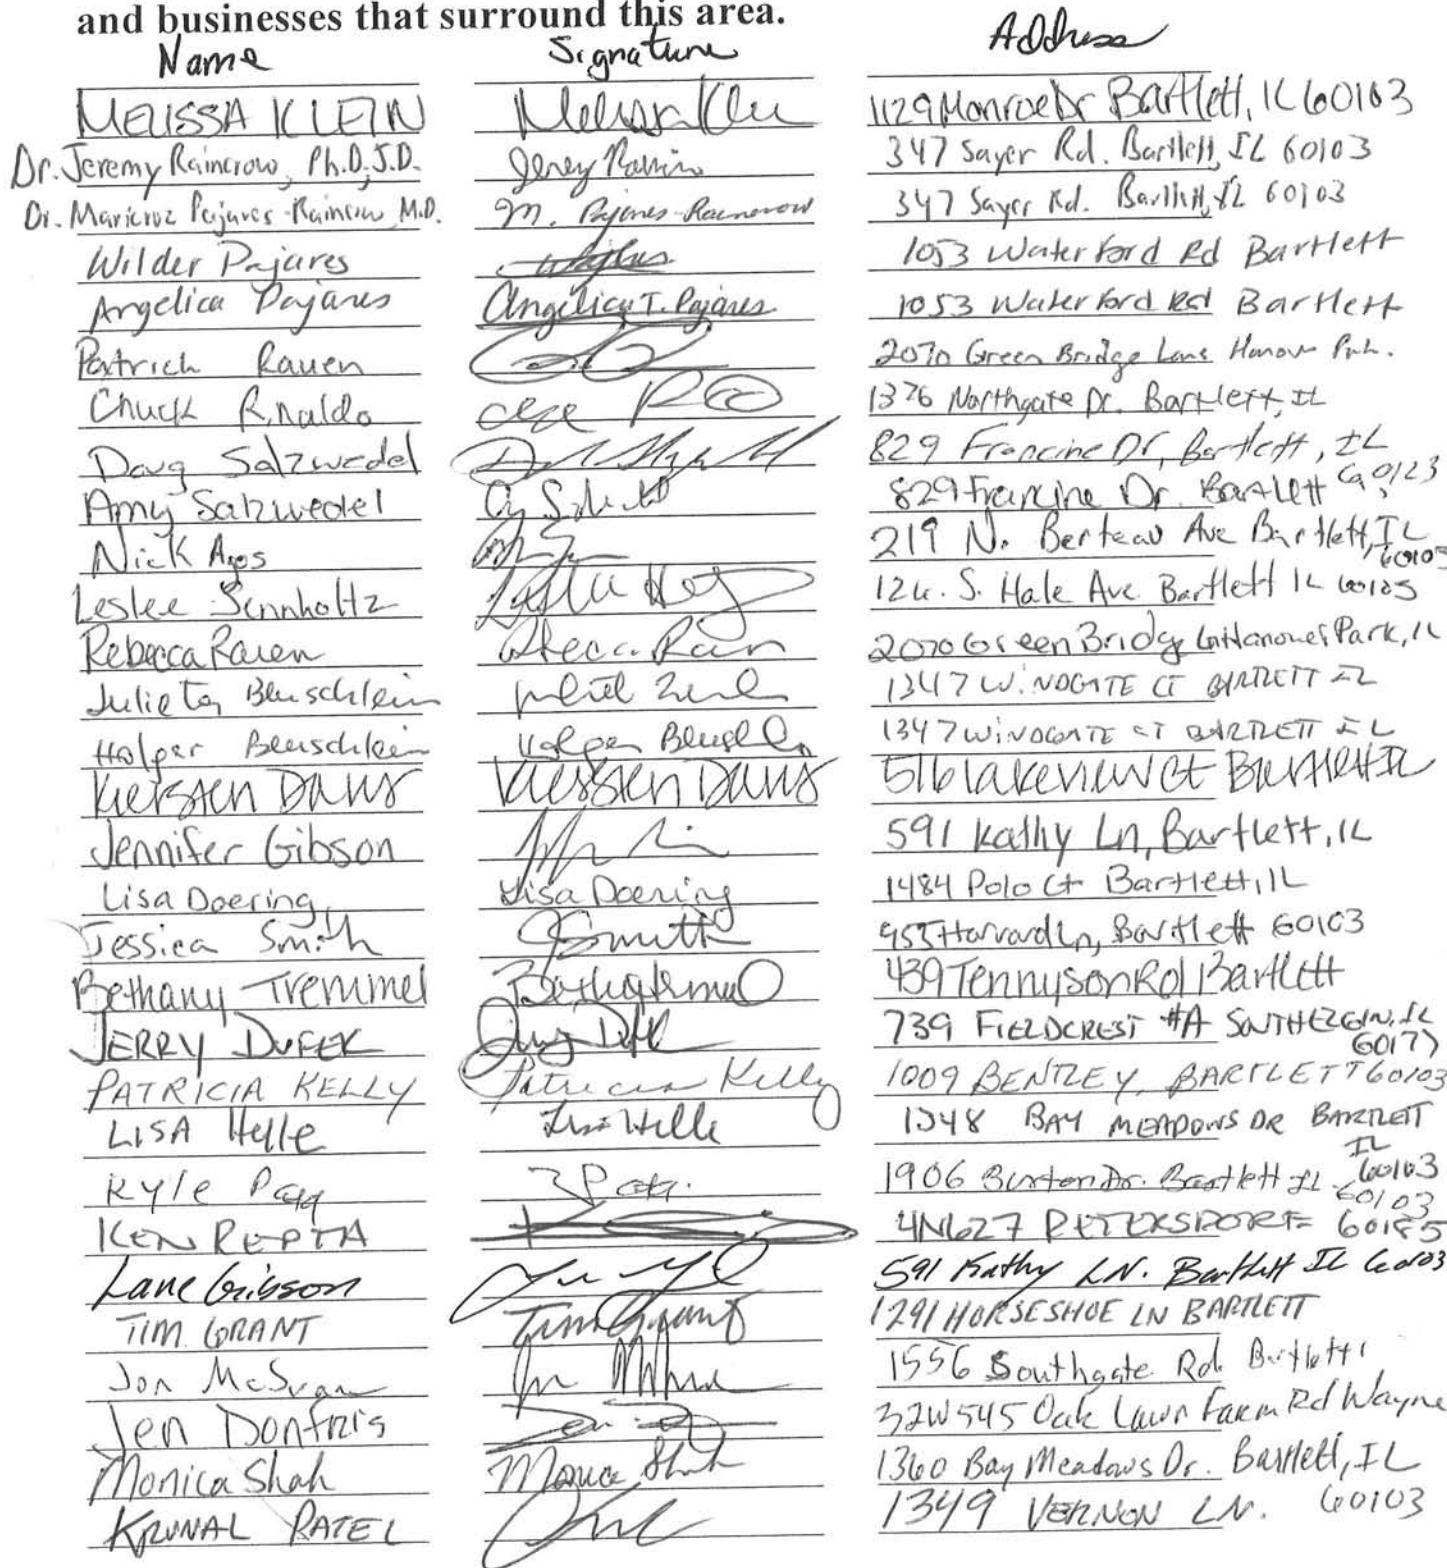 and businesses that surround this area.
Name Signature Address
MELISSA KLEIN Melissa Klei 1129 Monroe Dr Bartlett, IL 60103
Dr. Jeremy Raincrow, Ph.D., J.D. 347 Sayer Rd. Bartlett, IL 60103
Dr. Maricruz Pajares-Raincrow M.D. M. Pajares-Raincrow 347 Sayer Rd. Bartlett, IL 60103
Wilder Pajares 1053 Waterford Rd Bartlett
Angelica Pajares Angelica T. Pajares 1053 Waterford Rd Bartlett
Patrick Rauen 2070 Green Bridge Lane Hanover Prk.
Chuck Rinaldo 1376 Northgate Dr. Bartlett, IL
Doug Salzwedel 829 Francine Dr, Bartlett, IL
Amy Salzwedel 829 Francine Dr. Bartlett 60123
Nick 219 N. Berteau Ave Bartlett, IL 60103
Leslee Sennholtz S. Hale Ave Bartlett IL 60103
Rebecca Rauen 2070 Green Bridge Ln Hanover Park, IL
Julieta Beuschlein 1347 WINDGATE CT BARTLETT IL
Holger Beuschlein Holger 1347 WINDGATE CT BARTLETT IL
Kiersten Davis Kiersten Davis 516 Lakeview Ct Bartlett IL
Jennifer Gibson 591 Kathy Ln, Bartlett, IL
Lisa Doering Lisa Doering 1484 Polo Ct Bartlett, IL
Jessica Smith JSmith Harvard Ln, Bartlett 60103
Bethany Tremmel 439 Tennyson Rd Bartlett
JERRY DUFEK 739 FIELDCREST #A SOUTH ELGIN, IL 60177
PATRICIA KELLY Patricia Kelly 1009 BENTLEY, BARTLETT 60103
LISA Helle Lisa Helle 1348 BAY MEADOWS DR BARTLETT IL 60103
Kyle 1906 Burton Dr. Bartlett IL 60103
KEN REPTA 4N627 PETERSDORF 60185
Lane Gibson 591 Kathy LN. Bartlett IL 60103
TIM GRANT Tim Grant 1291 HORSESHOE LN BARTLETT
Jon 1556 Southgate Rd Bartlett
Jen Donfris 32W545 Oak Lawn Farm Rd Wayne
Monica Shah Monica Shah 1360 Bay Meadows Dr. Bartlett, IL
KRUNAL PATEL 1349 VERNON LN. 60103